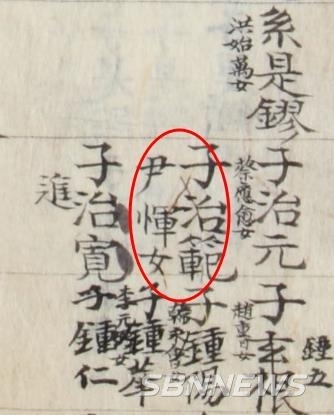 系是鏐
洪始萬女
子治元
蔡應愈女
子治範
尹惲女
子治寬
進
子玄根
趙壽女
鍾五
子鍾
子鍾華
李元
女
子鍾仁
SBNNEWS